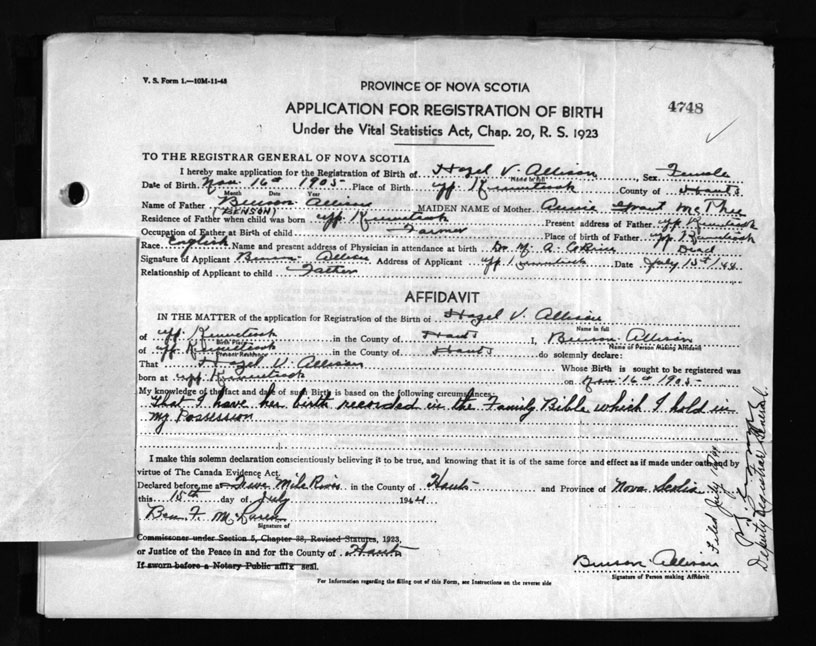 V. S. Form 1.—10M-11-43
PROVINCE OF NOVA SCOTIA
APPLICATION FOR REGISTRATION OF BIRTH
4748
Under the Vital Statistics Act, Chap. 20, R. S. 1923
TO THE REGISTRAR GENERAL OF NOVA SCOTIA
I hereby make application for the Registration of Birth of Hazel V. Allison, Sex Female
Name in full
Date of Birth Nov 16th 1905 Place of Birth Upp Kennetcook County of Hants
Month Date Year
Name of Father Benson Allison MAIDEN NAME of Mother Annie Grant
(BENSON)
Residence of Father when child was born Upp Kennetcook Present address of Father Upp Kennetcook
Occupation of Father at Birth of child Farmer Place of birth of Father Upp Kennetcook
Race English Name and present address of Physician in attendance at birth Dr. M. A. Dead
Signature of Applicant Benson Allison Address of Applicant Upp Kennetcook Date July 15th/44
Relationship of Applicant to child Father
AFFIDAVIT
IN THE MATTER of the application for Registration of the Birth of Hazel V. Allison
Name in full
of Upp Kennetcook in the County of Hants I, Benson Allison
Birth Place Name of Person Making Affidavit
of Upp Kennetcook in the County of Hants do solemnly declare:
Present Residence
That Hazel V. Allison Whose Birth is sought to be registered was
born at Upp Kennetcook on Nov 16th 1905
My knowledge of the fact and date of such Birth is based on the following circumstances:
That I have her birth recorded in the Family Bible which I hold in
my Possession
I make this solemn declaration conscientiously believing it to be true, and knowing that it is of the same force and effect as if made under oath and by
virtue of The Canada Evidence Act.
Declared before me at Mile River in the County of Hants and Province of Nova Scotia
this 15th day of July 1944
Ben F. McLaren
Signature of
Commissoner under Section 5, Chapter 38, Revised Statutes, 1923,
or Justice of the Peace in and for the County of Hants
If sworn before a Notary Public affix seal.
Benson Allison
Signature of Person making Affidavit
For Information regarding the filling out of this Form, see Instructions on the reverse side
Filed July
Deputy Registrar General.